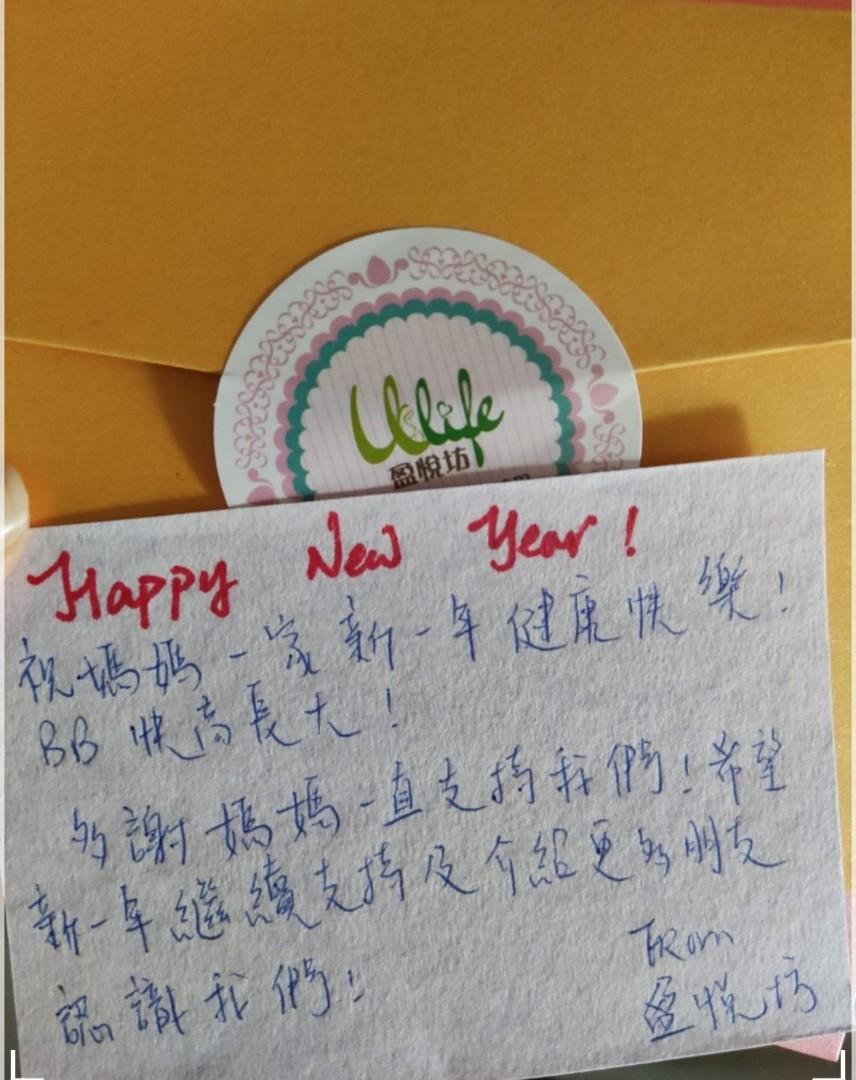 Ulife
盈悅坊
Happy New Year!
祝媽媽一家新一年健康快樂!
BB 快高長大!
多謝媽媽一直支持我們!希望
新一年繼續支持及介紹更多朋友
認識我們!
From
盈悅坊